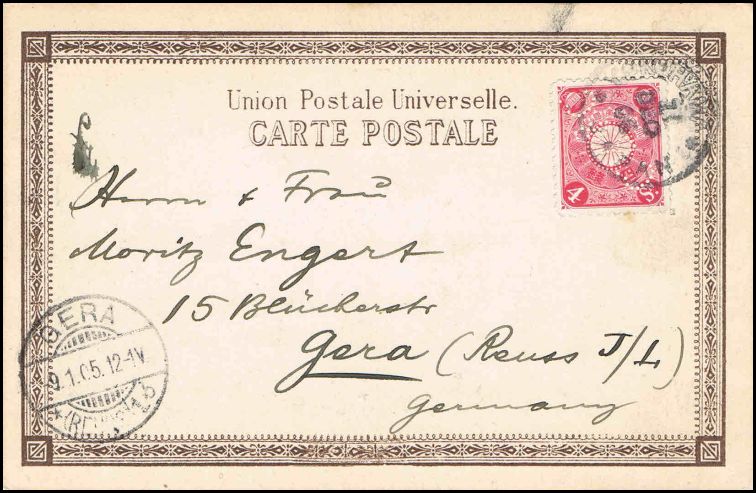 Union Postale Universelle.
CARTE POSTALE
4 S.
Herrn & Frau
Moritz Engert
15 Blücherstr
Gera (Reuss J/L)
Germany
GERA
9.1.05.12-1V